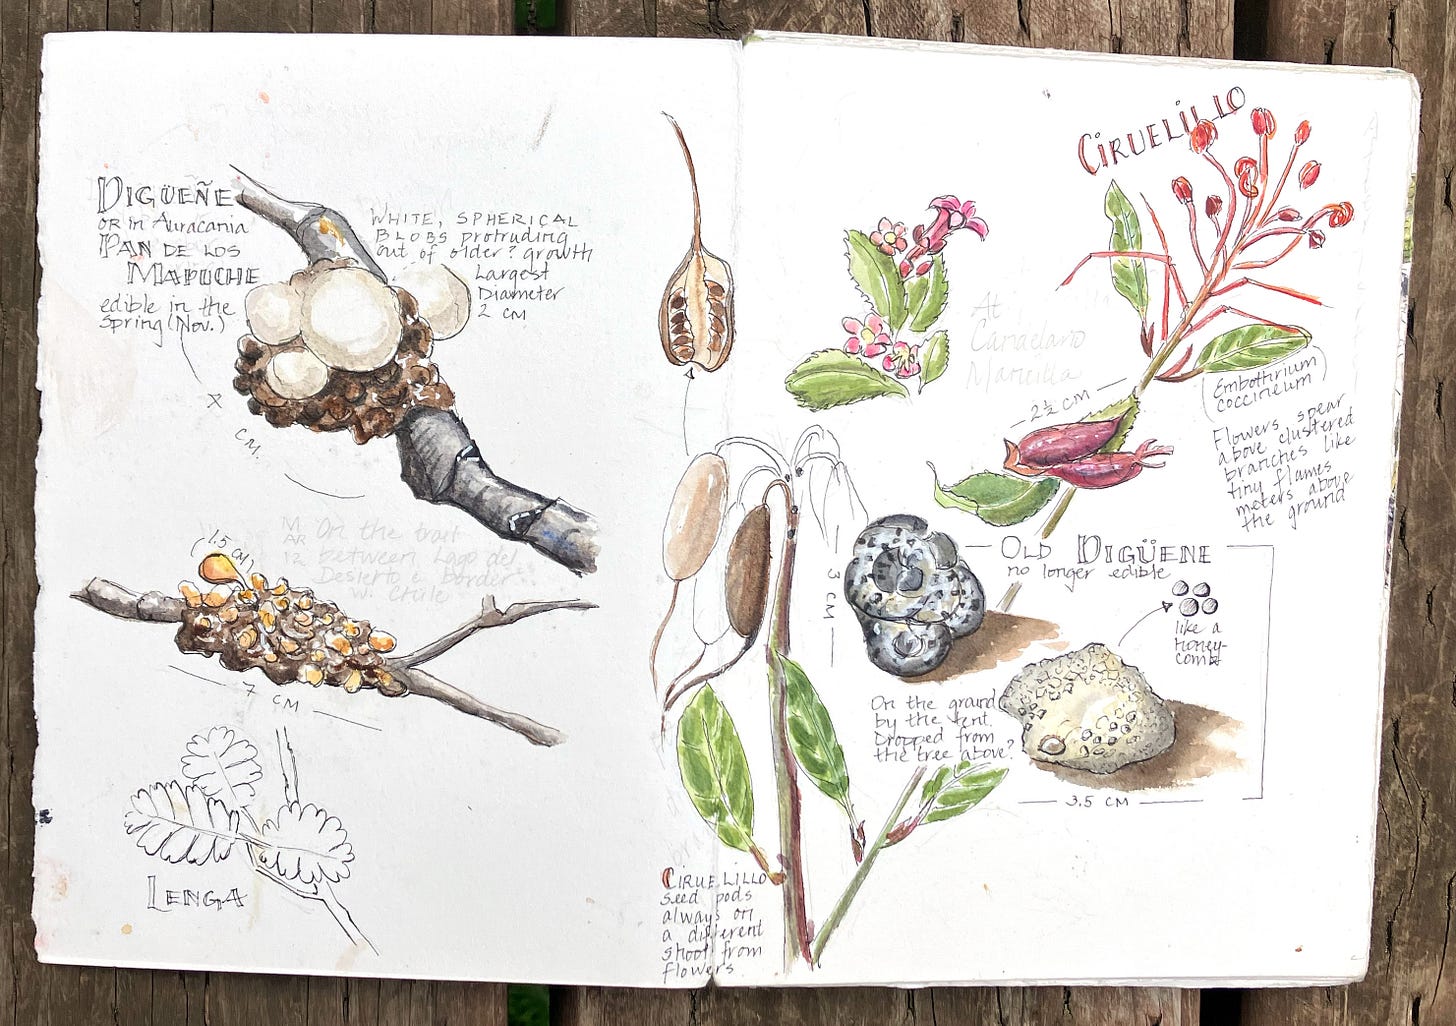 DIGÜEÑE
OR in Auracania
PAN DE LOS
MAPUCHE
edible in the
Spring (Nov.)
WHITE, SPHERICAL
BLOBS protruding
out of older? growth
Largest
Diameter
2 CM
CM.
1.5 CM
MAR
12
On the trail
between Lago del
Desierto & border
W. Chile
7
CM
LENGA
CIRUELILLO
At
Candelario
Mancilla
2½ CM
(Embothrium
coccineum)
Flowers spear
above clustered
branches like
tiny flames
meters above
the ground
OLD DIGÜENE
no longer edible
3 CM
like a
Honey-
comb
On the ground
by the tent.
Dropped from
the tree above?
3.5 CM
CIRUELILLO
seed pods
always on
a different
shoot from
flowers